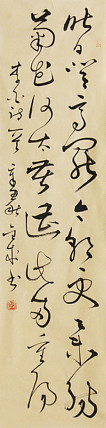 昨日登高罷今朝更舉觴
菊花何太苦遭此兩重陽
李白詩一首
書